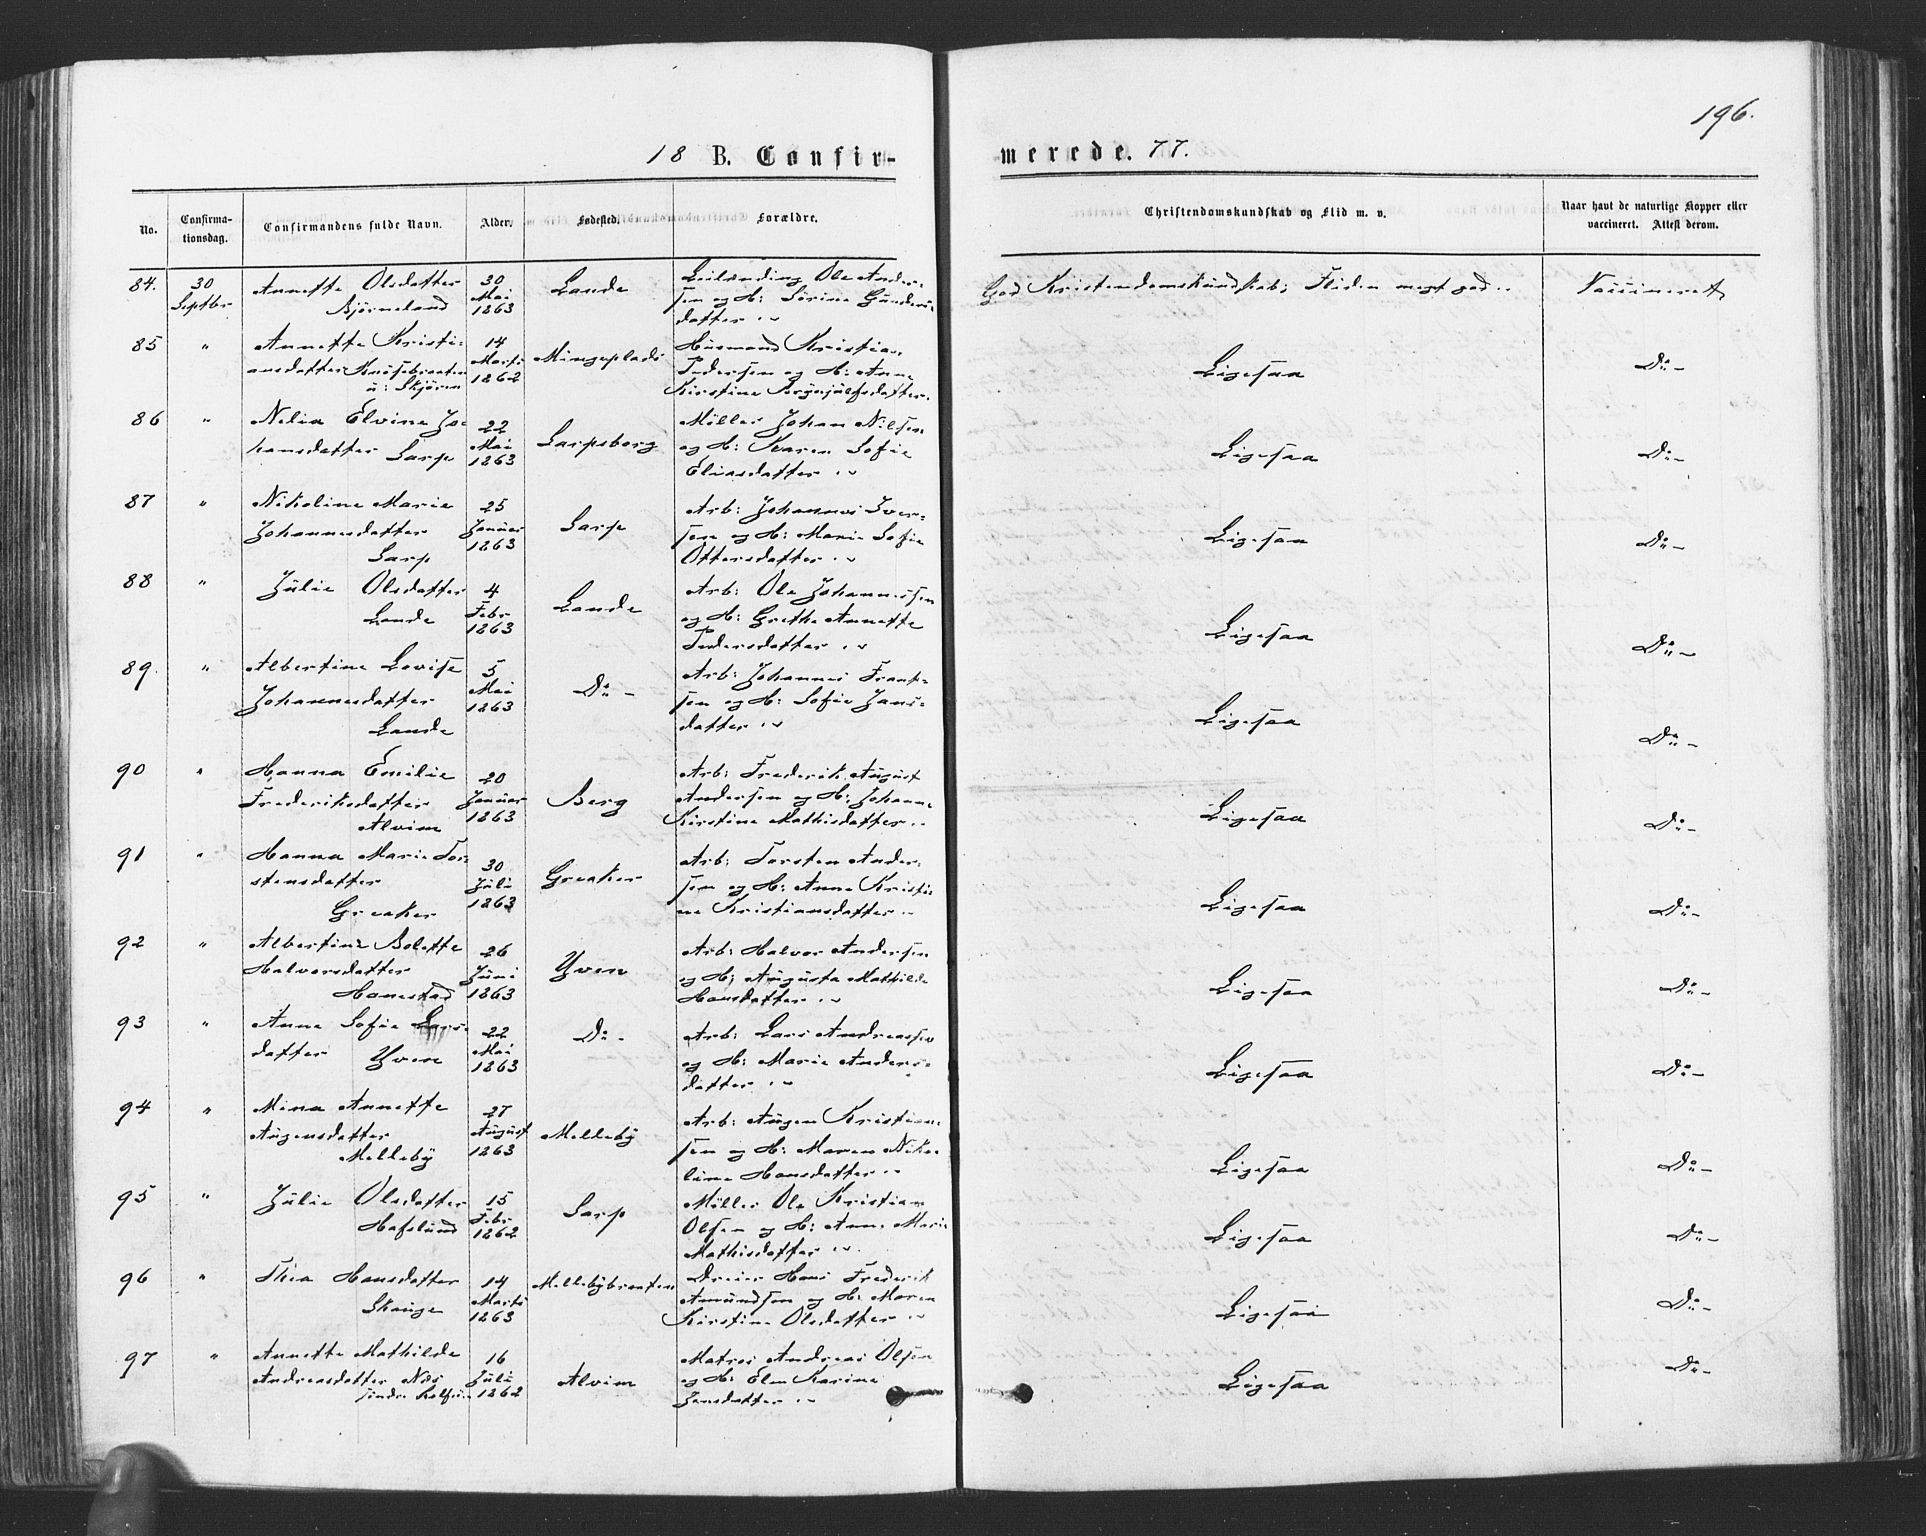 196.
18 B. Confir-
merede. 77.
No.
Confirma-
tionsdag.
Confirmandens fulde Navn.
Alder.
Fødested.
Forældre.
Christendomskundskab og Flid m. v.
Naar havt de naturlige Kopper eller
vaccineret. Attest derom.
84.
30
Septbr
Annette Olsdatter
Bjørneland
30
Mai
1863
Lande
Leilænding Ole Ander-
sen og H: Sørine Gunders-
datter
God Kristendomskundskab; Fliden megt god
Vaccineret
85 "
Annette Kristi-
ansdatter
14
Marts
1862
Mingeplads
Husmand Kristian
Pedersen og H: Anne
Kirstine
Ligesaa
Do -
86 "
Nelia Elvine Jo-
hansdatter Sarp
22
Mai
1863
Sarpsborg
Møller Johan Nilsen
og H: Karen Sofie
Eliasdatter
Ligesaa
Do -
87 "
Nikoline Marie
Johannesdatter
Sarp
25
Januar
1863
Sarp
Arb: Johannes Iver-
sen og H: Maria Sofie
Ottersdatter
Ligesaa
Do -
88 "
Julie Olsdatter
Lande
4
Febr
1863
Lande
Arb: Ole Johannessen
og H: Grethe Annette
Pedersdatter
Ligesaa
Do -
89. "
Albertine Lovise
Johannesdatter
Lande
5
Mai
1863
Do -
Arb: Johannes Frant-
sen og H: Sofie Jans-
datter
Ligesaa
Do -
90 "
Hanna Emilie
Frederiksdatter
Alvim
20
Januar
1863
Berg
Arb: Frederik August
Andersen og H: Johanne
Kirstine Mathisdatter
Ligesaa
Do -
91 "
Hanna Marie Tor-
stensdatter
Greaker
30
Juli
1863
Greaker
Arb: Torsten Ander-
sen og H: Anne Kristi-
ne Kristiansdatter
Ligesaa
Do -
92 "
Albertine Bolette
Halvorsdatter
Hanestad
26
Juni
1863
Yven
Arb: Halvor Andersen
og H; Augusta Mathilde
Hansdatter
Ligesaa
Do -
93 "
Anne Sofie Lars-
datter Yven
22
Mai
1863
Do -
Arb: Lars Andreassen
og H: Marie Anders-
datter
Ligesaa
Do -
94 "
Mina Annette
Augensdatter
Melleby
27
August
1863
Melleby
Arb: Augen Kristian-
sen og H: Maren Niko-
line Hansdatter
Ligesaa
Do -
95 "
Julie Olsdatter
Hafslund
15
Febr
1862
Sarp
Møller Ole Kristian
Olsen og H: Anne Marie
Mathisdatter
Ligesaa
Do -
96 "
Thea Hansdatter
Skauge
14
Marts
1863
Mellebybraaten
Dreier Hans Frederik
Amundsen og H: Maren
Kirstine Olsdatter
Ligesaa
Do -
97 "
Annette Mathilde
Andreasdatter Næs
16
Juli
1862
Alvim
Matros Andreas Olsen
og H: Elen Karine
Jensdatter
Ligesaa
Do -